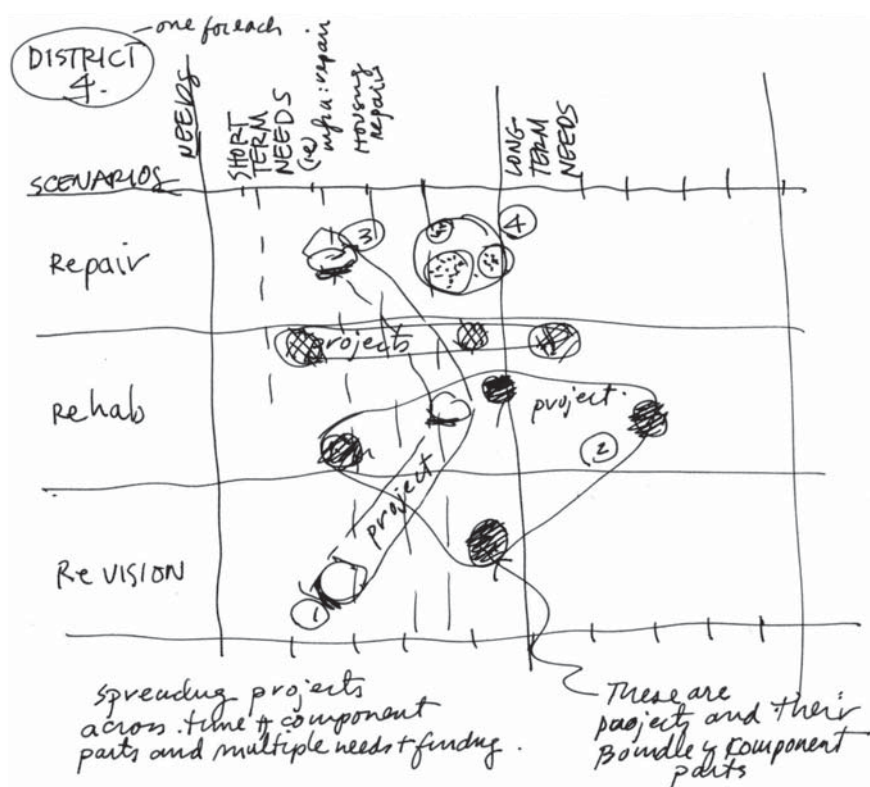 one for each
DISTRICT
4.
NEEDS
SHORT
TERM
NEEDS
(ie)
infra: repair
Housing
repairs
LONG-
TERM
NEEDS
SCENARIOS
Repair
3
4
projects
Rehab
project.
2
project
Re VISION
1
spreading projects
across time + component
parts and multiple needs + funding.
These are
projects and their
component
parts